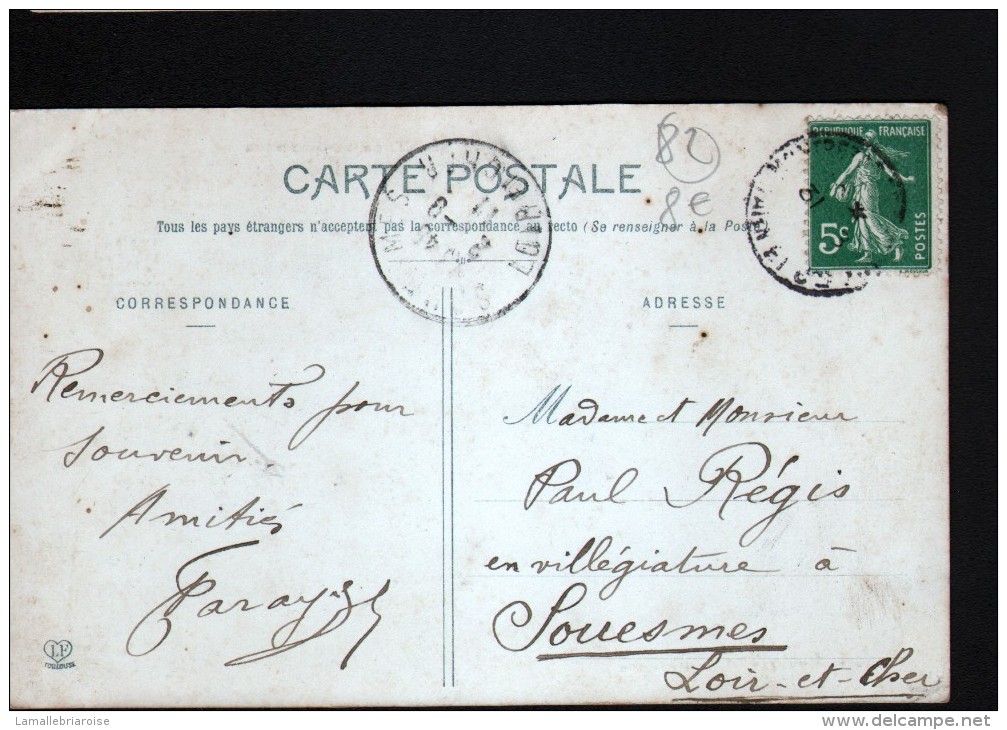 82
8€
REPUBLIQUE FRANÇAISE
5c
POSTES
CARTE POSTALE
Tous les pays étrangers n'acceptent pas la correspondance au recto (Se renseigner à la Poste
CORRESPONDANCE
ADRESSE
Remerciements pour
souvenir.
Amitiés
Madame et Monsieur
Paul Régis
en villégiature à
Souesmes
Loir-et-Cher
LF
TOULOUSE
Lamallebriaroise
delcampe.net